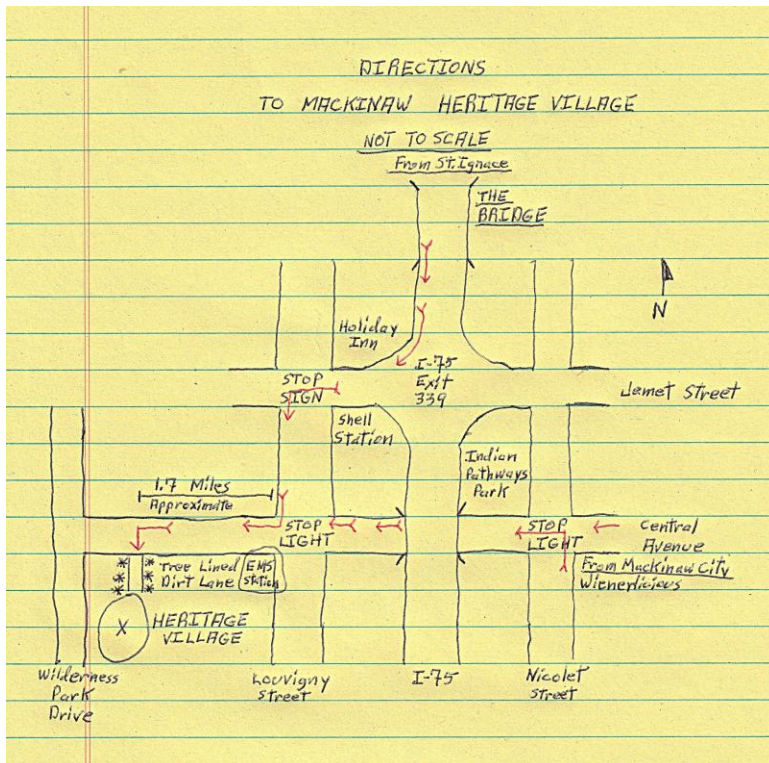 DIRECTIONS
TO MACKINAW HERITAGE VILLAGE
NOT TO SCALE
From St. Ignace
THE
BRIDGE
N
Holiday
Inn
I-75
Exit
339
STOP
SIGN
Jamet Street
Shell
Station
Indian
Pathways
Park
1.7 Miles
Approximate
STOP
LIGHT
STOP
LIGHT
Central
Avenue
From Mackinaw City
Wienerlicious
Tree Lined
Dirt Lane
EMS
Station
X
HERITAGE
VILLAGE
Wilderness
Park
Drive
Louvigny
Street
I-75
Nicolet
Street